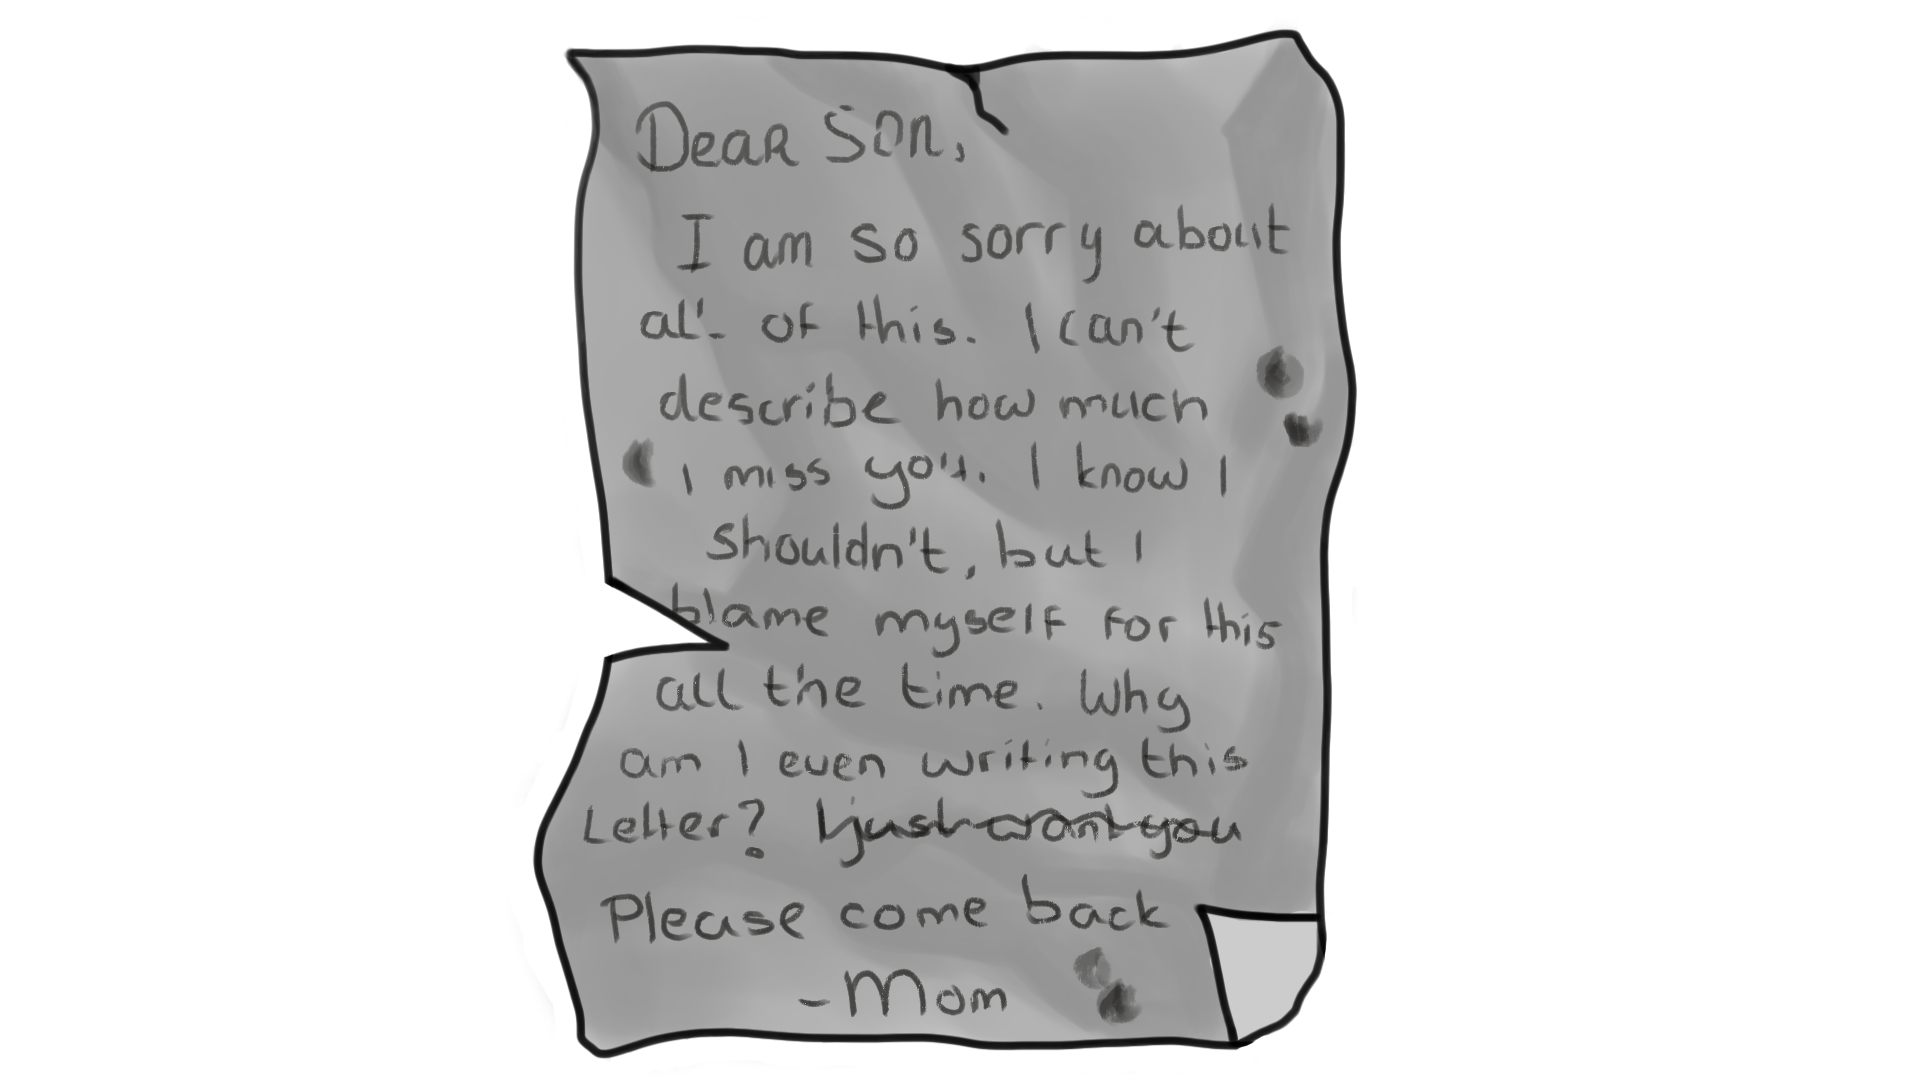 Dear Son,
I am so sorry about
all of this. I can't
describe how much
I miss you. I know I
shouldn't, but I
blame myself for this
all the time. Why
am I even writing this
Letter? I just want you
Please come back
-Mom